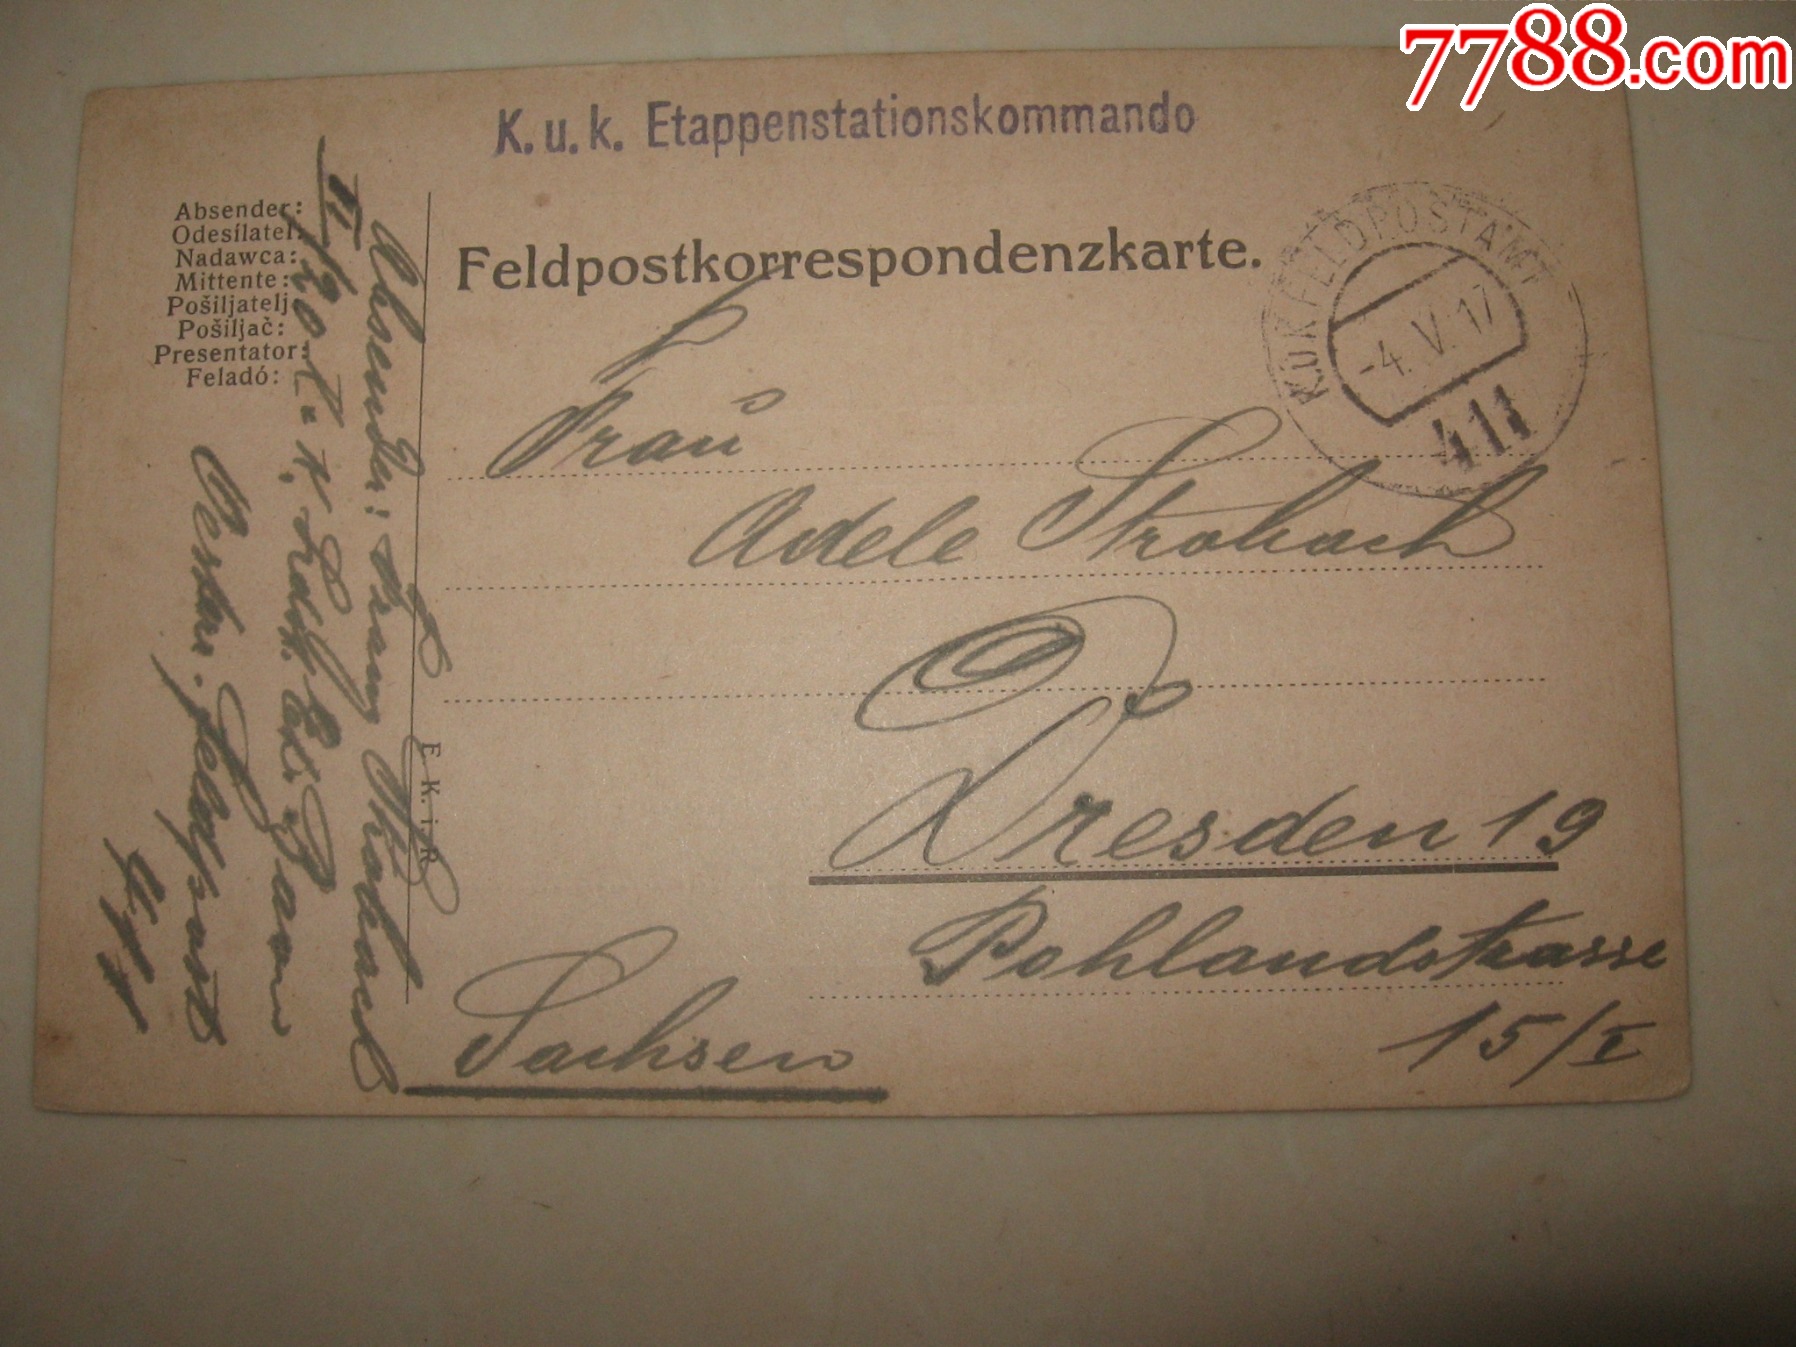 7788.com
K. u. k. Etappenstationskommando
Absender:
Odesílatel:
Nadawca:
Mittente:
Pošiljatelj
Pošiljač:
Presentator:
Feladó:
Feldpostkorrespondenzkarte.
K.u.K. FELDPOSTAMT
-4. V. 17
411
Frau
Adele Strobach
Dresden 19
Pohlandstrasse
15/I
Sachsen
E K. i. R
Absender: Franz Strobach
Österr. Feldpost
411